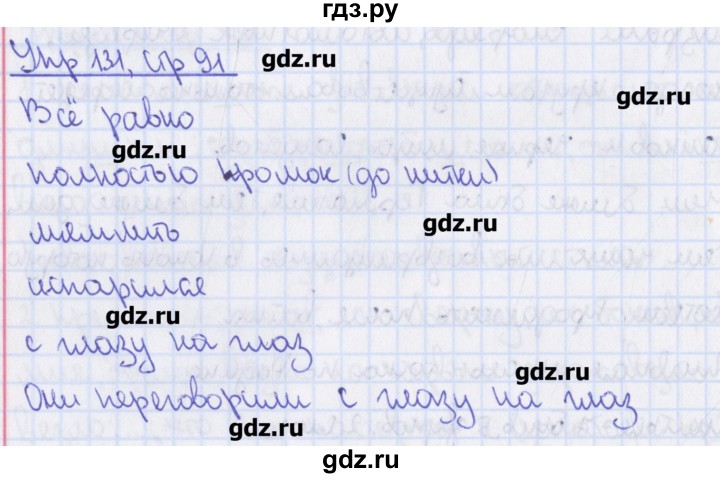 гдз.ру
Упр 131, стр 91
gdz.ru
gdz.ru
Всё равно
gdz.ru
полностью промок (до нитки)
gdz.ru
мямлить
испарился
gdz.ru
с глазу на глаз
gdz.ru
Они переговорили с глазу на глаз
gdz.ru
gdz.ru